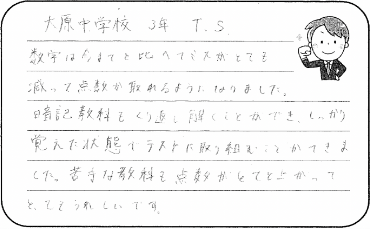 大原中学校 3年 T.S.
数学は今までと比べてミスがとても
減って点数が取れるようになりました。
暗記教科もくり返し解くことができ、しっかり
覚えた状態でテストに取り組むことができま
した。苦手な教科も点数がとても上がって
とてもうれしいです。